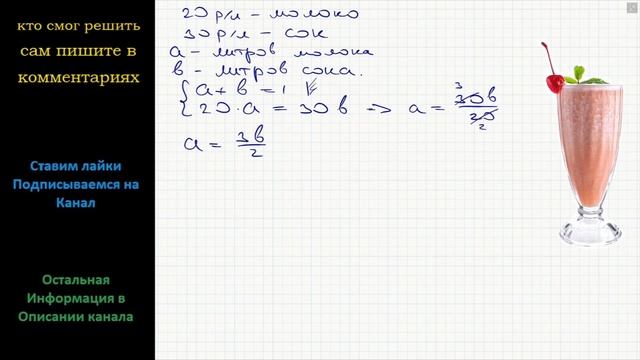 кто смог решить
сам пишите в
комментариях
Ставим лайки
Подписываемся на
Канал
Остальная
Информация в
Описании канала
20 р/л – молоко
30 р/л – сок
a – литров молока
в – литров сока.
{ a + в = 1
{ 20·a = 30в => a = 30в/20
3
2
a = 3в/2